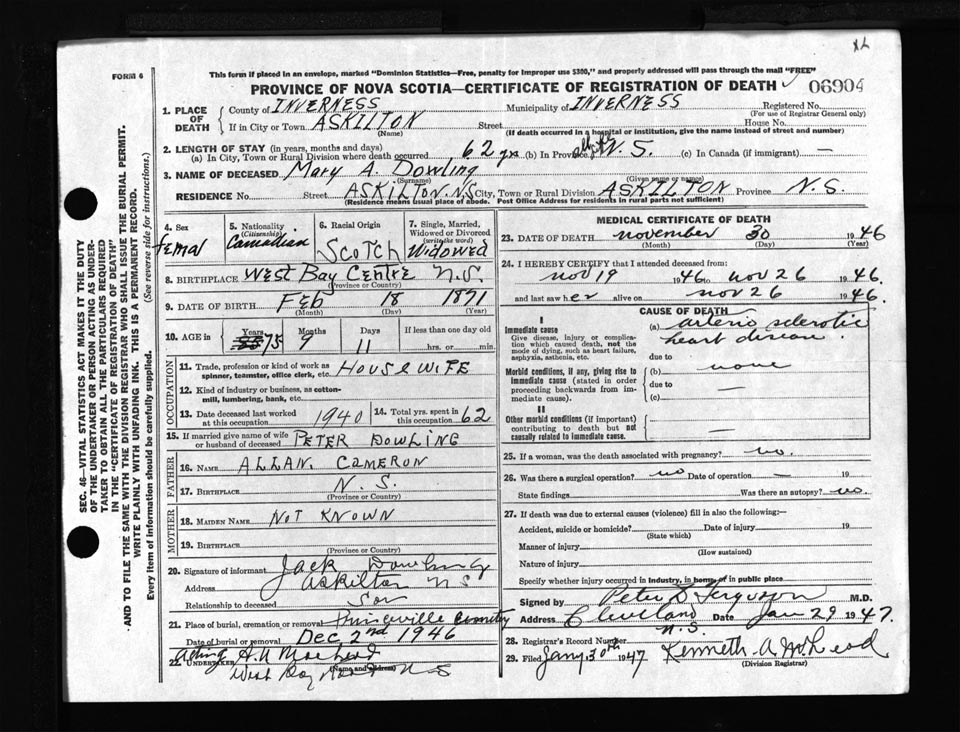 XL
FORM 6
This form if placed in an envelope, marked "Dominion Statistics—Free, penalty for improper use $300," and properly addressed will pass through the mail "FREE"
PROVINCE OF NOVA SCOTIA—CERTIFICATE OF REGISTRATION OF DEATH 06904
1. PLACE OF DEATH County of INVERNESS Municipality of INVERNESS Registered No.
(For use of Registrar General only)
If in City or Town ASKILTON Street House No.
(Name) (If death occurred in a hospital or institution, give the name instead of street and number)
2. LENGTH OF STAY (in years, months and days)
(a) In City, Town or Rural Division where death occurred 62 yrs (b) In Province all life N.S. (c) In Canada (if immigrant) —
3. NAME OF DECEASED Mary A. Dowling
(Surname) (Given name or names)
RESIDENCE No. Street ASKILTON. N.S. City, Town or Rural Division ASKILTON Province N.S.
(Residence means usual place of abode. Post Office Address for residents in rural parts not sufficient)
4. Sex femal
5. Nationality (Citizenship) Canadian
6. Racial Origin Scotch
7. Single, Married, Widowed or Divorced (write the word) Widowed
8. BIRTHPLACE West Bay Centre N.S.
(Province or Country)
9. DATE OF BIRTH Feb 18 1871
(Month) (Day) (Year)
10. AGE in Years 75 Months 9 Days 11 If less than one day old
hrs. or min.
OCCUPATION
11. Trade, profession or kind of work as spinner, teamster, office clerk, etc. HOUSEWIFE
12. Kind of industry or business, as cotton-mill, lumbering, bank, etc.
13. Date deceased last worked at this occupation 1940
14. Total yrs. spent in this occupation 62
15. If married give name of wife or husband of deceased PETER DOWLING
FATHER
16. NAME ALLAN. CAMERON
17. BIRTHPLACE N.S.
(Province or Country)
MOTHER
18. MAIDEN NAME NOT KNOWN
19. BIRTHPLACE
(Province or Country)
20. Signature of informant Jack Dowling
Address Askilton N S
Relationship to deceased Son
21. Place of burial, cremation or removal Princeville Cemetery
Date of burial or removal Dec 2nd 1946
Acting
22. UNDERTAKER
(Name and address)
West Bay N S
MEDICAL CERTIFICATE OF DEATH
23. DATE OF DEATH november 30 1946
(Month) (Day) (Year)
24. I HEREBY CERTIFY that I attended deceased from:
nov 19 1946 to nov 26 1946.
and last saw her alive on nov 26 1946.
CAUSE OF DEATH
I
Immediate cause
Give disease, injury or complication which caused death, not the mode of dying, such as heart failure, asphyxia, asthenia, etc.
(a) arterio sclerotic heart disease.
due to
Morbid conditions, if any, giving rise to immediate cause (stated in order proceeding backwards from immediate cause).
(b) none
due to —
(c)
II
Other morbid conditions (if important) contributing to death but not causally related to immediate cause. —
25. If a woman, was the death associated with pregnancy? no.
26. Was there a surgical operation? no Date of operation — 19
State findings Was there an autopsy? no.
27. If death was due to external causes (violence) fill in also the following:—
Accident, suicide or homicide? Date of injury 19
(State which)
Manner of injury
(How sustained)
Nature of injury
Specify whether injury occurred in industry, in home, or in public place
Signed by Peter S Ferguson M.D.
Address Cleveland N.S. Date Jan 29 1947.
28. Registrar's Record Number
29. Filed Jany 30th 1947 Kenneth A. McLeod
(Division Registrar)
SEC. 46—VITAL STATISTICS ACT MAKES IT THE DUTY
OF THE UNDERTAKER OR PERSON ACTING AS UNDER-
TAKER TO OBTAIN ALL THE PARTICULARS REQUIRED
IN THE "CERTIFICATE OF REGISTRATION OF DEATH"
AND TO FILE THE SAME WITH THE DIVISION REGISTRAR WHO SHALL ISSUE THE BURIAL PERMIT.
WRITE PLAINLY WITH UNFADING INK. THIS IS A PERMANENT RECORD.
Every item of information should be carefully supplied. (See reverse side for instructions.)